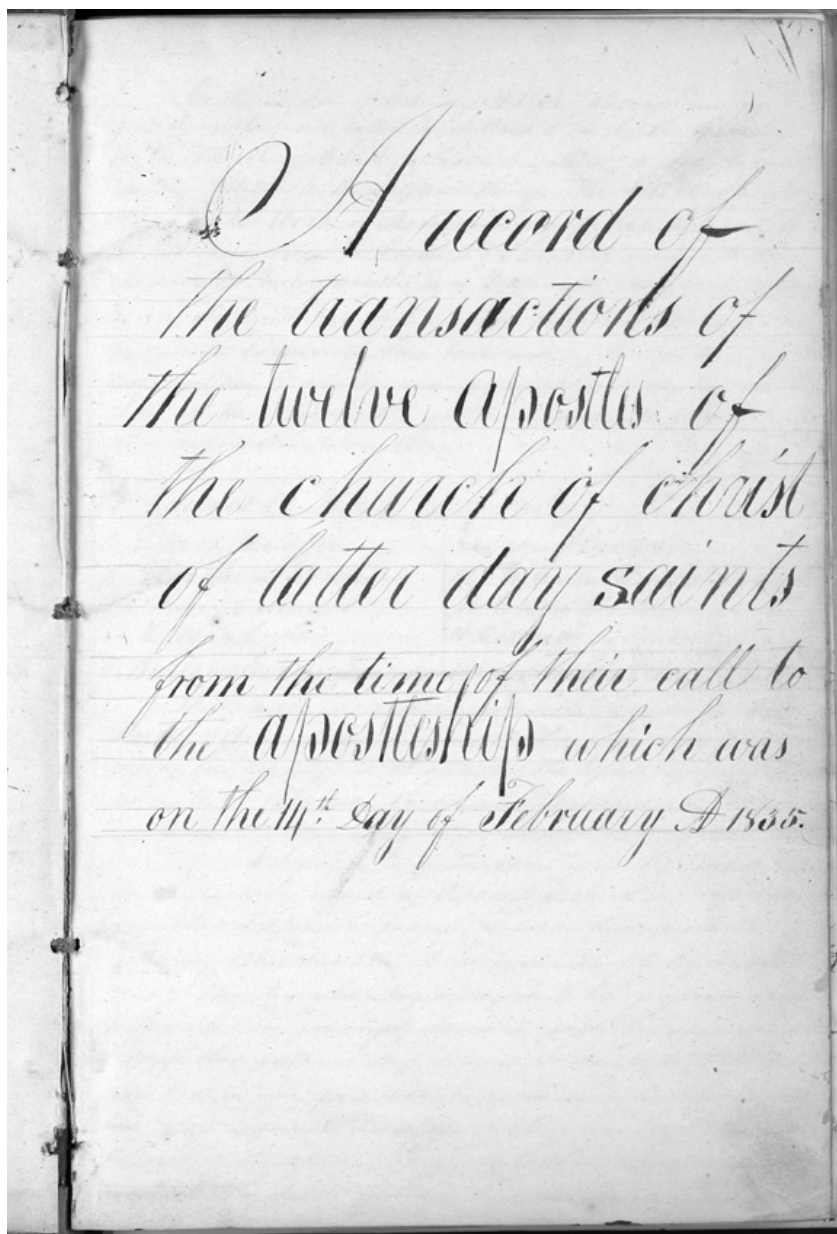 A record of
the transactions of
the twelve apostles of
the church of christ
of latter day saints
from the time of their call to
the apostleship which was
on the 14th. Day of February AD 1835.